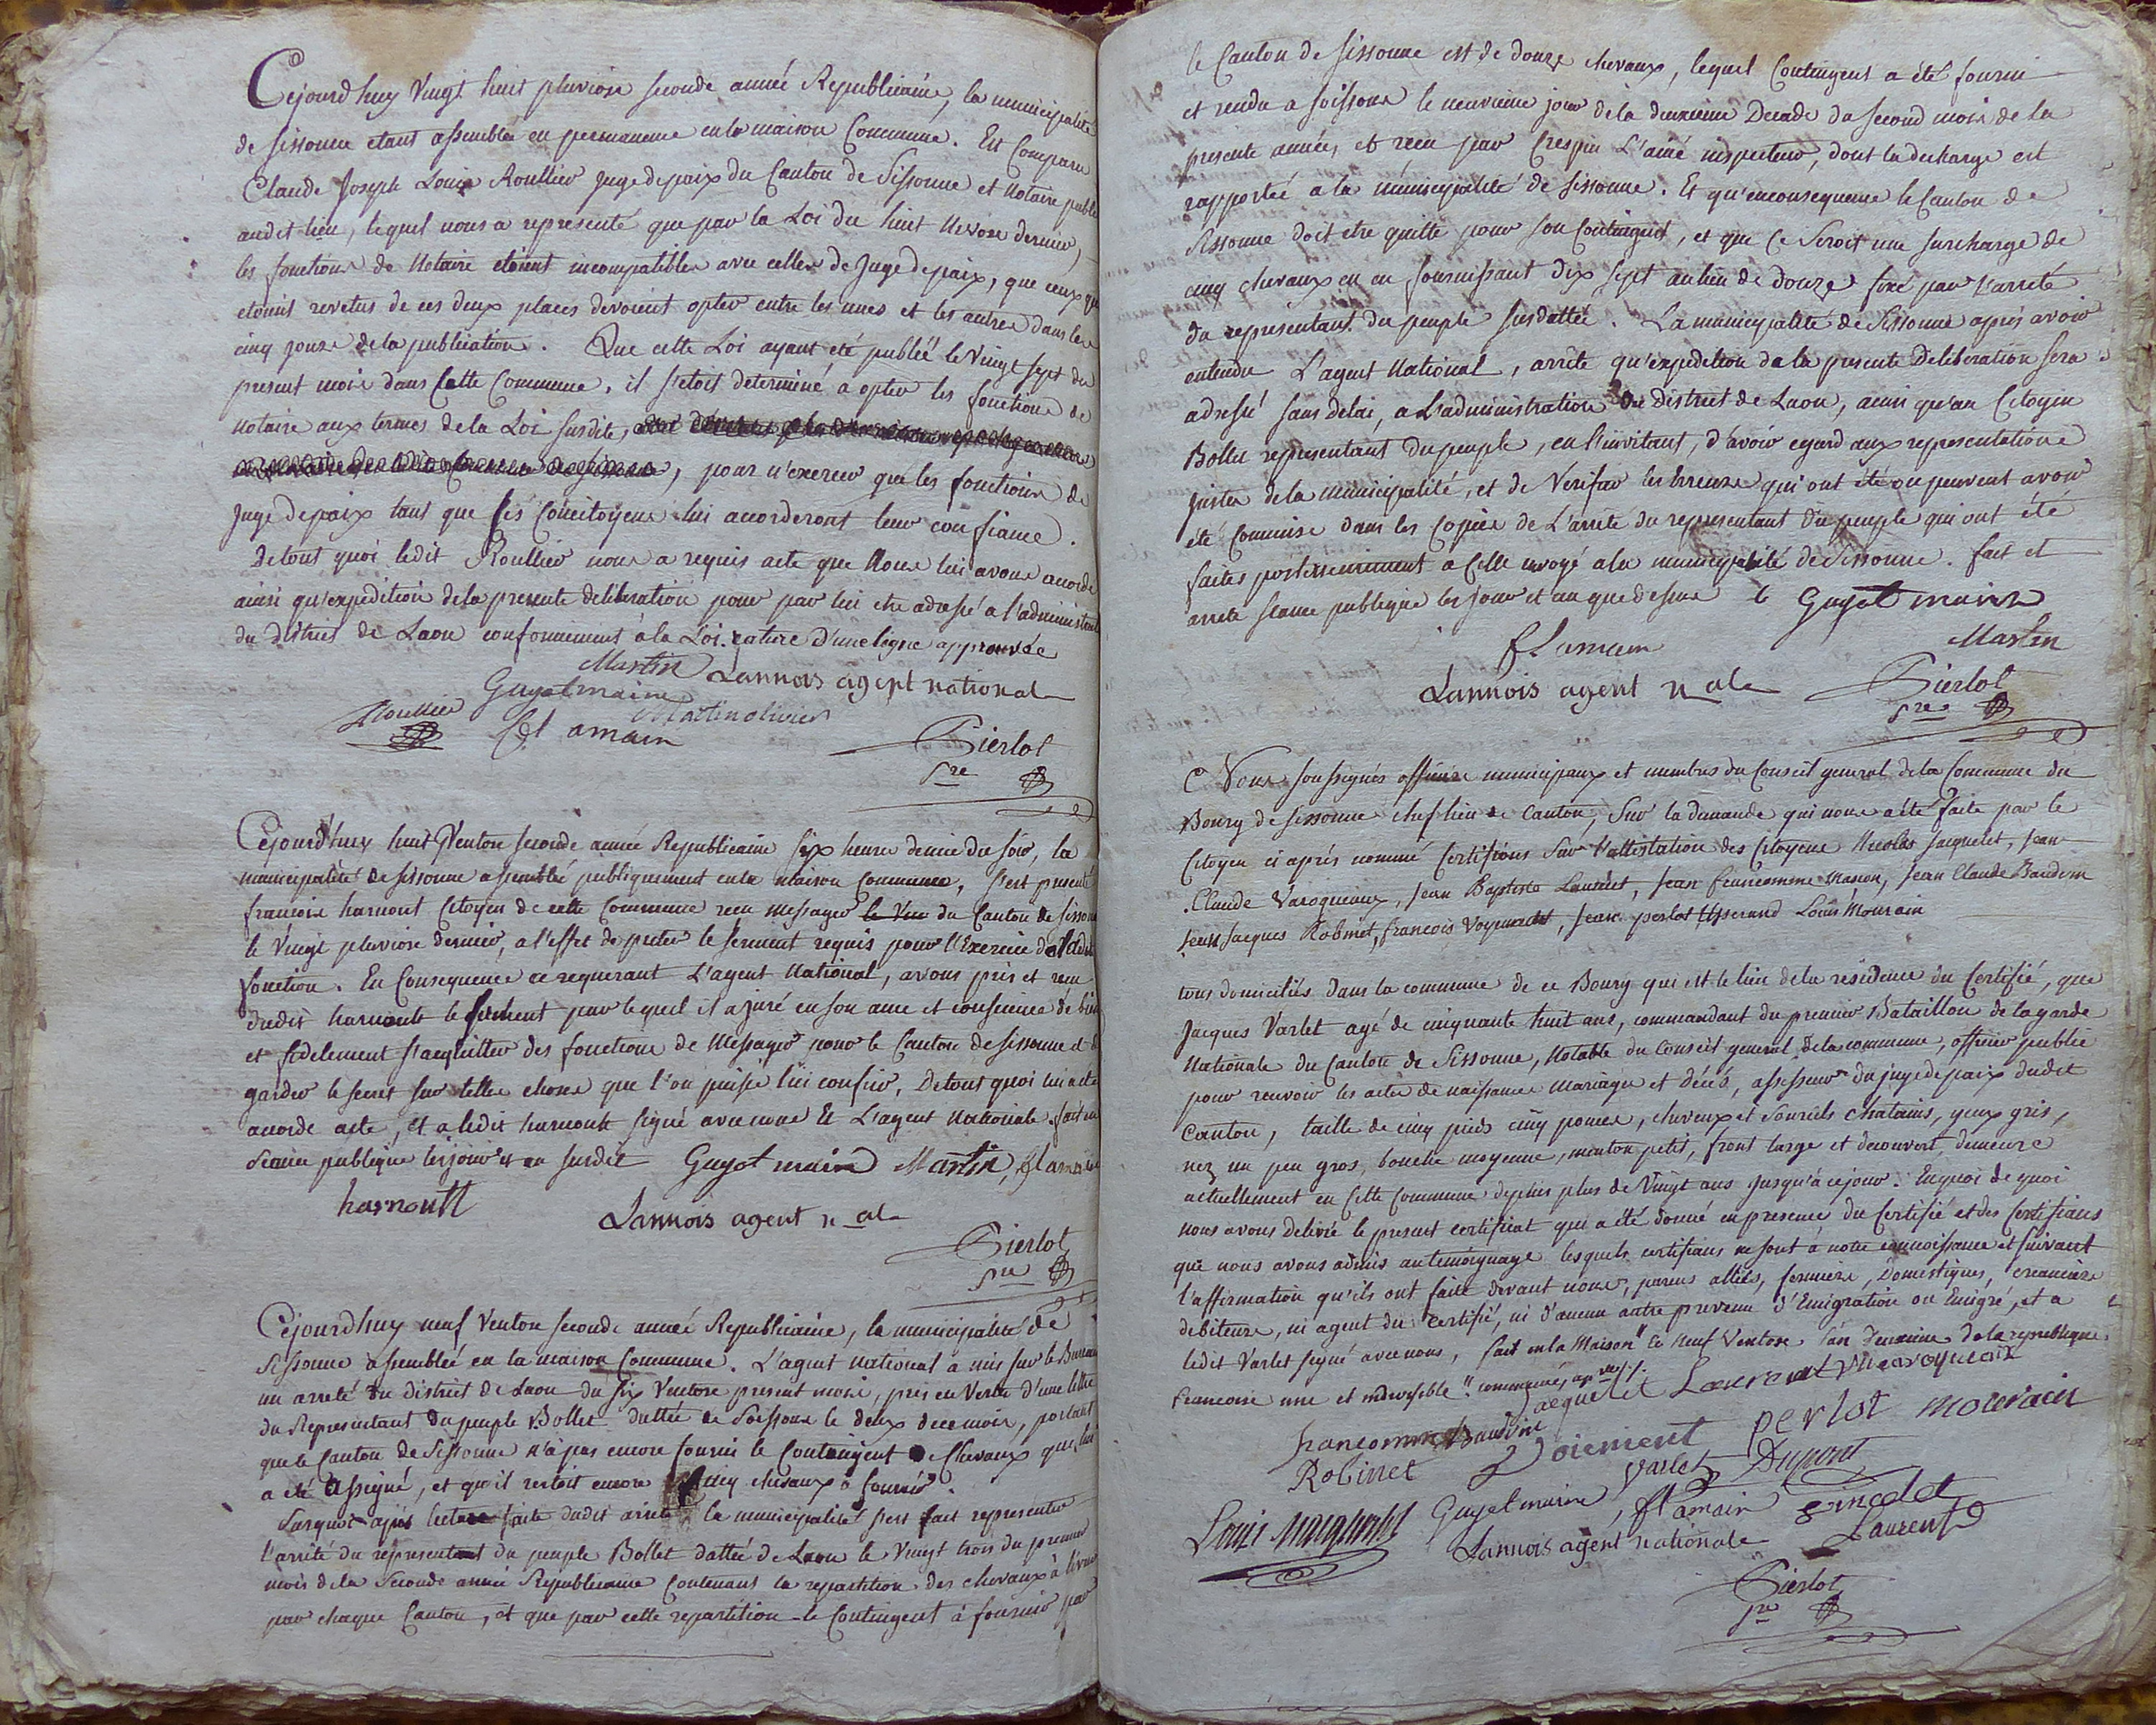 Cejourdhuy Vingt huit pluviose seconde année Republicaine, la municipalité
de sissonne etant assemblée en permanence en la maison Commune. Est Comparu
Claude Joseph Louis Roullier Juge de paix du Canton de Sissonne et Notaire public
audit lieu, lequel nous a representé que par la Loi du huit Nivose dernier,
les fonctions de Notaire etoient incompatibles avec celles de Juge de paix, que ceux qui
etoient revetus de ces deux places devoient opter entre les unes et les autres dans les
cinq jours de la publication. Que cette Loi ayant eté publiée le Vingt sept du
present mois dans Cette Commune, il s'etoit determiné a opter les fonctions de
Notaire aux termes de la Loi susdite,
, pour n'exercer que les fonctions de
Juge de paix tant que ses Concitoyens lui accorderont leur confiance.
De tout quoi ledit Roullier nous a requis acte que Nous lui avons accordé
ainsi qu'expedition de la presente deliberation pour par lui etre adressé a l'administration
du district de Laon conformement à la Loi. rature d'une ligne approuvée
Martin Lannois agent national
Roullier Guyot maire
Martin olivier
fl amain
Pierlot
sre
Cejourd'huy huit Ventose seconde année Republicaine six heures demie du soir, la
municipalité de sissonne assemblée publiquement en la maison Commune, s'est presenté
francois harnout Citoyen de cette Commune recu Messager le Vin du Canton de sissonne
le Vingt pluviose dernier, a l'effet de preter le serment requis pour l'Exercice de ladite
fonction. En Consequence ce requerant L'agent National, avons pris et recu
dudit harnoult le serment par lequel il a juré en son ame et conscience de bien
et fidelement s'acquitter des fonctions de Messager pour le Canton de sissonne et de
garder le secret sur telles choses que l'on puisse lui confier, De tout quoi lui avons
accordé acte, et a ledit harnoult signé avec nous Et L'agent Nationale. fait en
Seance publique les jour et an susdit Guyot maire Martin, fl amain
harnoult
Lannois agent n ale
Pierlot
sre
Cejourdhuy neuf Ventose seconde année Republicaine, la municipalité de
Sissonne assemblée en la maison Commune. L'agent national a mis sur le Bureau
un arreté du district de Laon du six Ventose present mois, pris en Vertu d'une lettre
du Representant du peuple Bollet dattée de Soissons le deux de ce mois, portant
que le Canton de Sissonne n'a pas encore fourni le Contingent de Chevaux qui lui
a eté assigné, et qu'il restoit encore cinq chevaux à fournir.
Surquoi après lecture faite dudit arreté la municipalité s'est fait representer
l'arrêté du representant du peuple Bollet dattée de Laon le Vingt trois du premier
mois de la Seconde année Republicaine Contenant la repartition des chevaux à lever
par chaque Canton, et que par cette repartition le Contingent à fournir par
le Canton de sissonne est de douze chevaux, lequel Contingent a été fourni
et rendu a soissons le neuvieme jour de la deuxieme Decade du second mois de la
presente année, et recu par Crespin L'ainé inspecteur, dont la decharge est
rapportée a la municipalité de sissonne. Et qu'en consequence le Canton de
Sissonne doit etre quitte pour son Contingent, et que Ce Seroit une surcharge de
cinq chevaux en en fournissant dix sept au lieu de douze fixé par l'arreté
du representant du peuple susdattée. La municipalité de Sissonne après avoir
entendu L'agent National, arrête qu'expedition de la presente Deliberation sera
adressé sans delai, a L'administration Du district de Laon, ainsi qu'au Citoyen
Bollet representant du peuple, en l'invitant, d'avoir egard aux representations
justes de la municipalité, et de Verifier les erreurs qui ont été ou peuvent avoir
été Commises dans les Copies de L'arreté du representant du peuple qui ont été
faites posterieurement a Celle envoyé a la municipalité de Sissonne. fait et
arreté seance publique les jour et an que dessus Guyot maire
fl amain Martin
Lannois agent n ale Pierlot
sre
Nous soussignés officiers municipaux et membres du Conseil general de la Commune du
Bourg de sissonne chef lieu de Canton, Sur la demande qui nous a été faite par le
Citoyen ci après nommé Certifions Sur l'attestation des Citoyens Nicolas Jacquelet, Jean
Claude Varoqueaux, Jean Baptiste Laurent, Jean francomme Masson, Jean Claude Baudvin
Jean Jacques Robinet, francois Voyement, Jean perlot tisserand Louis Mourain
tous domiciliés dans la commune de ce Bourg qui est le lieu de la résidence du Certifié, que
Jacques Varlet agé de cinquante huit ans, commandant du premier Bataillon de la garde
Nationale du Canton de Sissonne, Notable du Conseil general de la commune, officier public
pour recevoir les actes de naissance mariages et décès, assesseur du juge de paix dudit
Canton, taille de cinq pieds cinq pouces, cheveux et sourcils chatains, yeux gris,
nez un peu gros, bouche moyenne, menton petit, front large et decouvert, demeure
actuellement en Cette Commune depuis plus de Vingt ans jusqu'à ce jour. En quoi de quoi
nous avons delivré le present certificat qui a été donné en presence du Certifié et des Certifians
que nous avons admis au temoignage lesquels certifians ne sont a notre connoissance et suivant
l'affirmation qu'ils ont faite devant nous, parens alliés, fermiers, Domestiques, creanciers
debiteurs, ni agent du certifié, ni d'aucun autre prevenu d'Emigration ou Emigré, et a
ledit Varlet signé avec nous, fait en la Maison" le neuf Ventose l'an deuxieme de la republique
francoise une et indivisible. " commune
Jacquelet Laurent varoqueaux
francomme Baudvin Voiement perlot mourain
Robinet Varlet Dupont
Louis Guyot maire, fl amain pincelet
Lannois agent nationale Laurent
Pierlot
sre